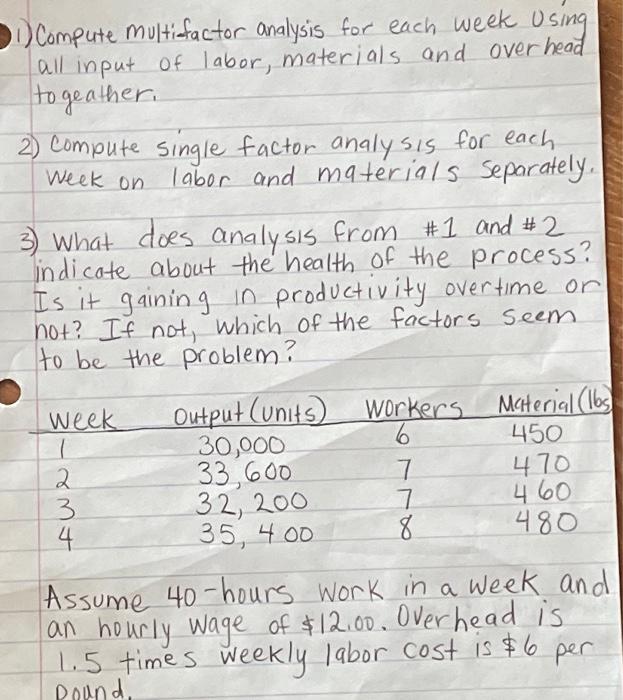 1) Compute multifactor analysis for each week using
all input of labor, materials and overhead
togeather.
2) Compute single factor analysis for each
week on labor and materials separately.
3) What does analysis from #1 and #2
indicate about the health of the process?
Is it gaining in productivity overtime or
not? If not, which of the factors seem
to be the problem?
Week Output (units) Workers Material (lbs)
1 30,000 6 450
2 33,600 7 470
3 32,200 7 460
4 35,400 8 480
Assume 40-hours work in a week and
an hourly wage of $12.00. Overhead is
1.5 times weekly labor cost is $6 per
pound.